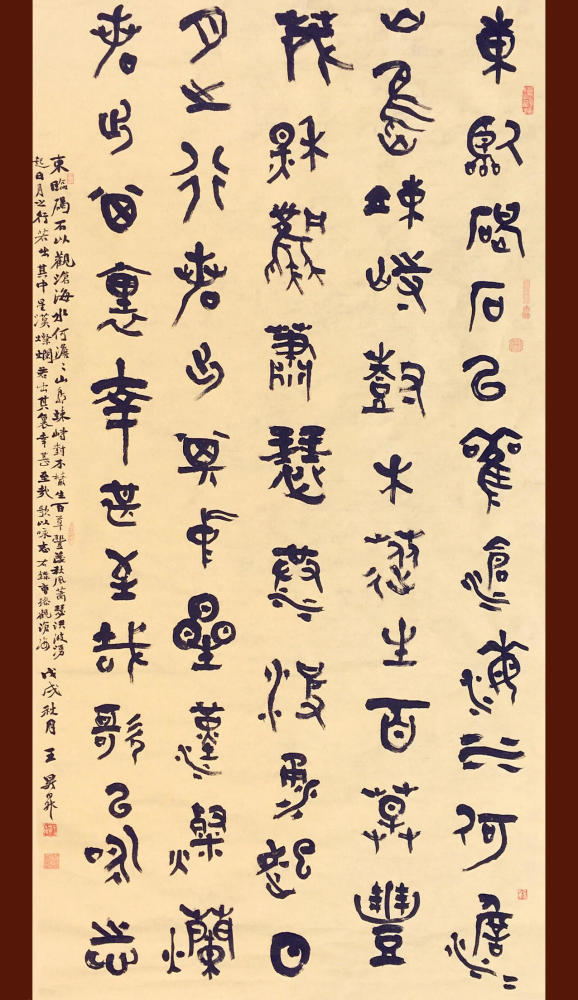 東臨碣石以觀滄海水何澹〻
山島竦峙樹木叢生百草豐
茂秋風蕭瑟洪波涌起日
月之行若出其中星漢燦爛
若出其裏幸甚至哉歌以詠志
東臨碣石以觀滄海水何澹〻山島竦峙封木叢生百草豐茂秋風蕭瑟洪波湧
起日月之行若出其中星漢燦爛若出其裏幸甚至哉歌以咏志右錄曹操觀滄海
戊戌秋月王